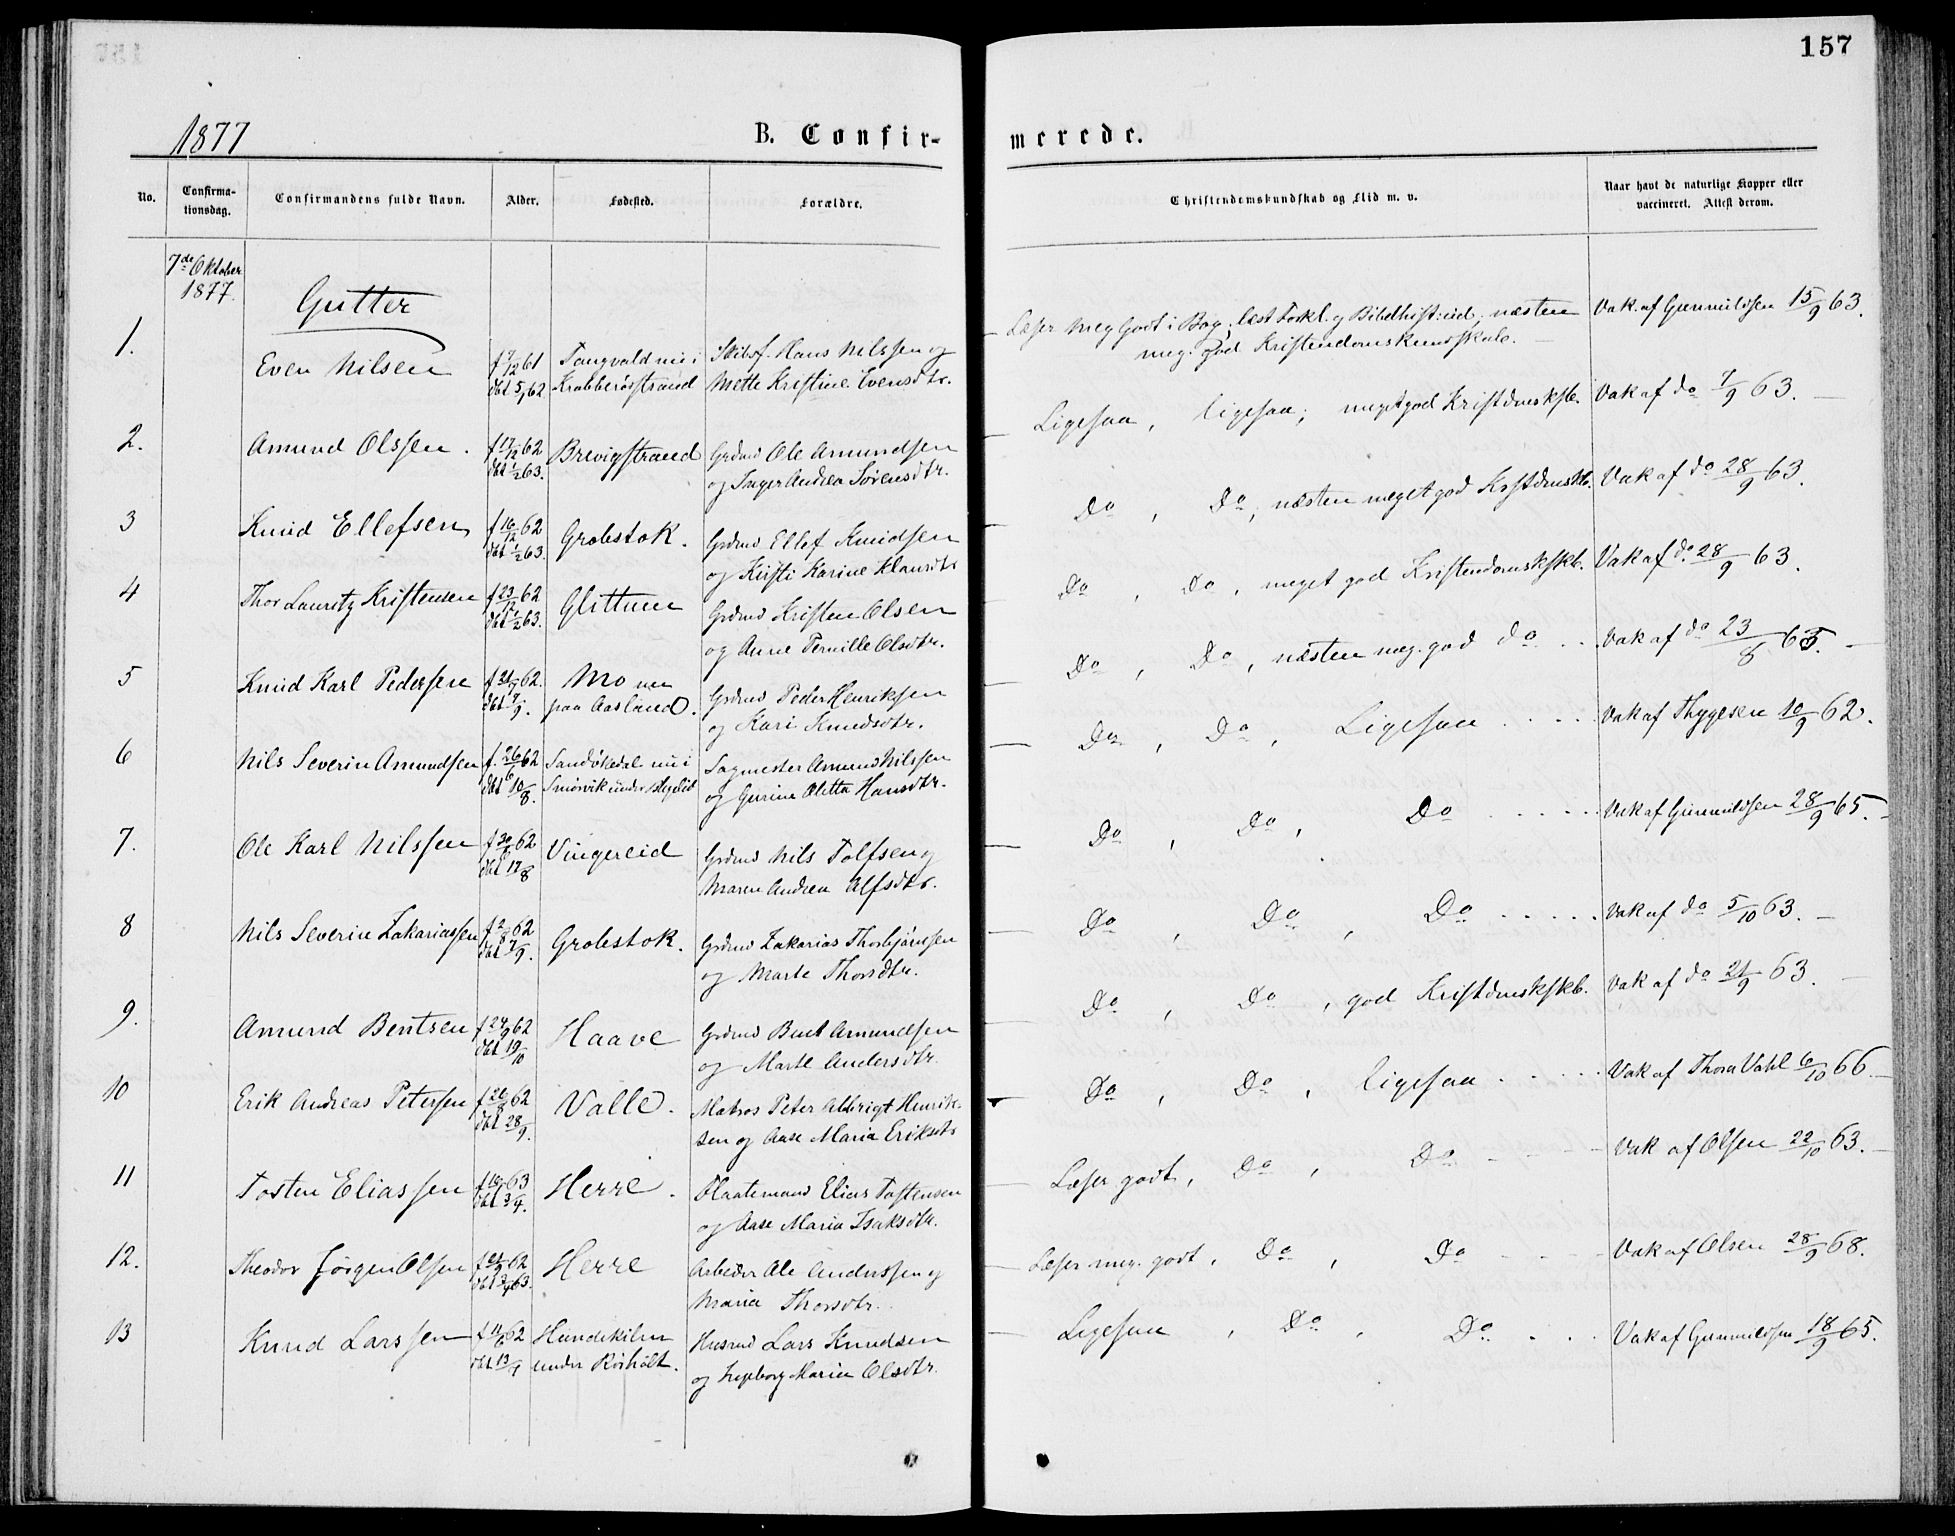 157
1877
B. Confir-
merede.
No.
Confirma-
tionsdag.
Confirmandens fulde Navn.
Alder.
Fødested.
Forældre.
Christendomskundskab og Flid m. v.
Naar havt de naturlige Kopper eller
vaccineret. Attest derom.
7de Oktober
1877.
Gutter
1. Even Nilsen f 7/12 61 Tangvald nu i Skibsf. Hans Nilssen og
dbt 5/1 62 Krabberøstrand Mette Kristine Evensdtr.
Læser meg godt i Bog; læst Forkl. og Bibelhist: ud, næsten Vak. af Gunnuldsen 15/9 63.
meg. god Kristendomskundskab.
2. Amund Olssen. f 17/12 62 Brevigstrand Grdmd Ole Amundsen
dbt 1/2 63. og Inger Andrea Sørensdtr.
Ligesaa, ligesaa; meget god Kristdmskskb. Vak af do 7/9 63.
3 Knud Ellefsen f 16/12 62 Grobstok. Grdmd Ellef Knudsen
dbt 1/2 63. og Kirsti Karine Klausdtr
Do, Do, næsten meget god Krstdmskb. Vak af do 28/9 63.
4 Thor Lauritz Kristensen f 23/12 62 Glittum Grdmd Kristen Olsen
dbt 1/2 63. og Anne Pernille Olsdtr.
Do, Do, meget god Kristendomskskb. Vak af do 28/9 63.
5 Knud Karl Pedersen f 21/7 62. Mo nu Grdmd Peder Henriksen
dbt 7/9. paa Aasland. og Kari Knudsdtr.
Do, Do, næsten meg. god do .. Vak af do 23/8 63.
6 Nils Severin Amundsen f. 26/6 62 Sandøkedal nu i Sagmester Amund Nilssen
dbt 10/8. Smørvik under og Gurine Oletta Hansdtr.
Do, Do, Ligesaa .... Vak af Thygesen 10/9 62.
7. Ole Karl Nilssen f 30/6 62 Vingereid Grdmd Nils Tolfsen og
dbt 17/8 Maren Andrea Alfsdtr.
Do, Do, Do ..... Vak af Gunnuldsen 28/9 65.
8 Nils Severin Zakariassen f 2/8 62 Grobstok. Grdmd Zakarias Thorbjørnsen
dbt 7/9. og Marte Thorsdtr.
Do, Do, Do ..... Vak af do 5/10 63.
9. Amund Bentsen f 24/9 62 Haave Grdmd Bent Amundsen
dbt 19/10 og Marte Andersdtr.
Do, Do, god Kristdmskskb. Vak af do 21/9 63.
10 Erik Andreas Petersen f 26/8 62 Valle. Matros Peter Albrigt Henrik-
dbt 28/9. sen og Aase Maria Eriksdtr
Do, Do, ligesaa ..... Vak af Thora Vahl 6/10 66
11 Tosten Eliassen f 63 Herre. Plaatemand Elias Tostensen
dbt 3/4. og Aase Maria Isaksdtr.
Læser godt, Do, Do - - - - Vak af Olsen 22/10 63.
12. Theodor Jørgen Olsen f 21/9 62 Herre Arbeider Ole Anderssen og
dbt 3/4 63. Maria Thorsdtr.
Læser meg. godt, Do, Do - - - Vak af Olsen 28/9 68.
13 Knud Larssen f 11/6 62 Hundekilen Husmd Lars Knudsen
dbt 13/9 under Rørholt. og Ingeborg Maria Olsdtr.
Ligesaa, Do, Do. .. Vak af Gunnuldsen 18/9 65.